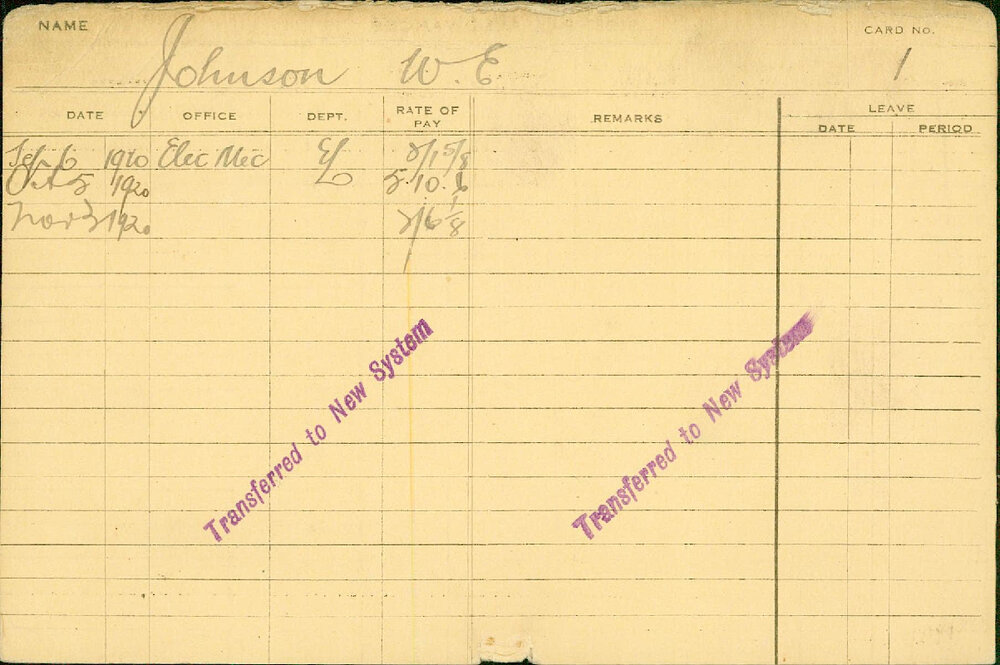 NAME
Johnson W. E.
CARD No.
1
DATE OFFICE DEPT. RATE OF PAY REMARKS LEAVE
DATE PERIOD
Sep 6 1920 Elec Mec EL 2/1 5/8
Oct 5 1920 5.10.6
Nov 3 1920 2/6 1/8
Transferred to New System
Transferred to New System